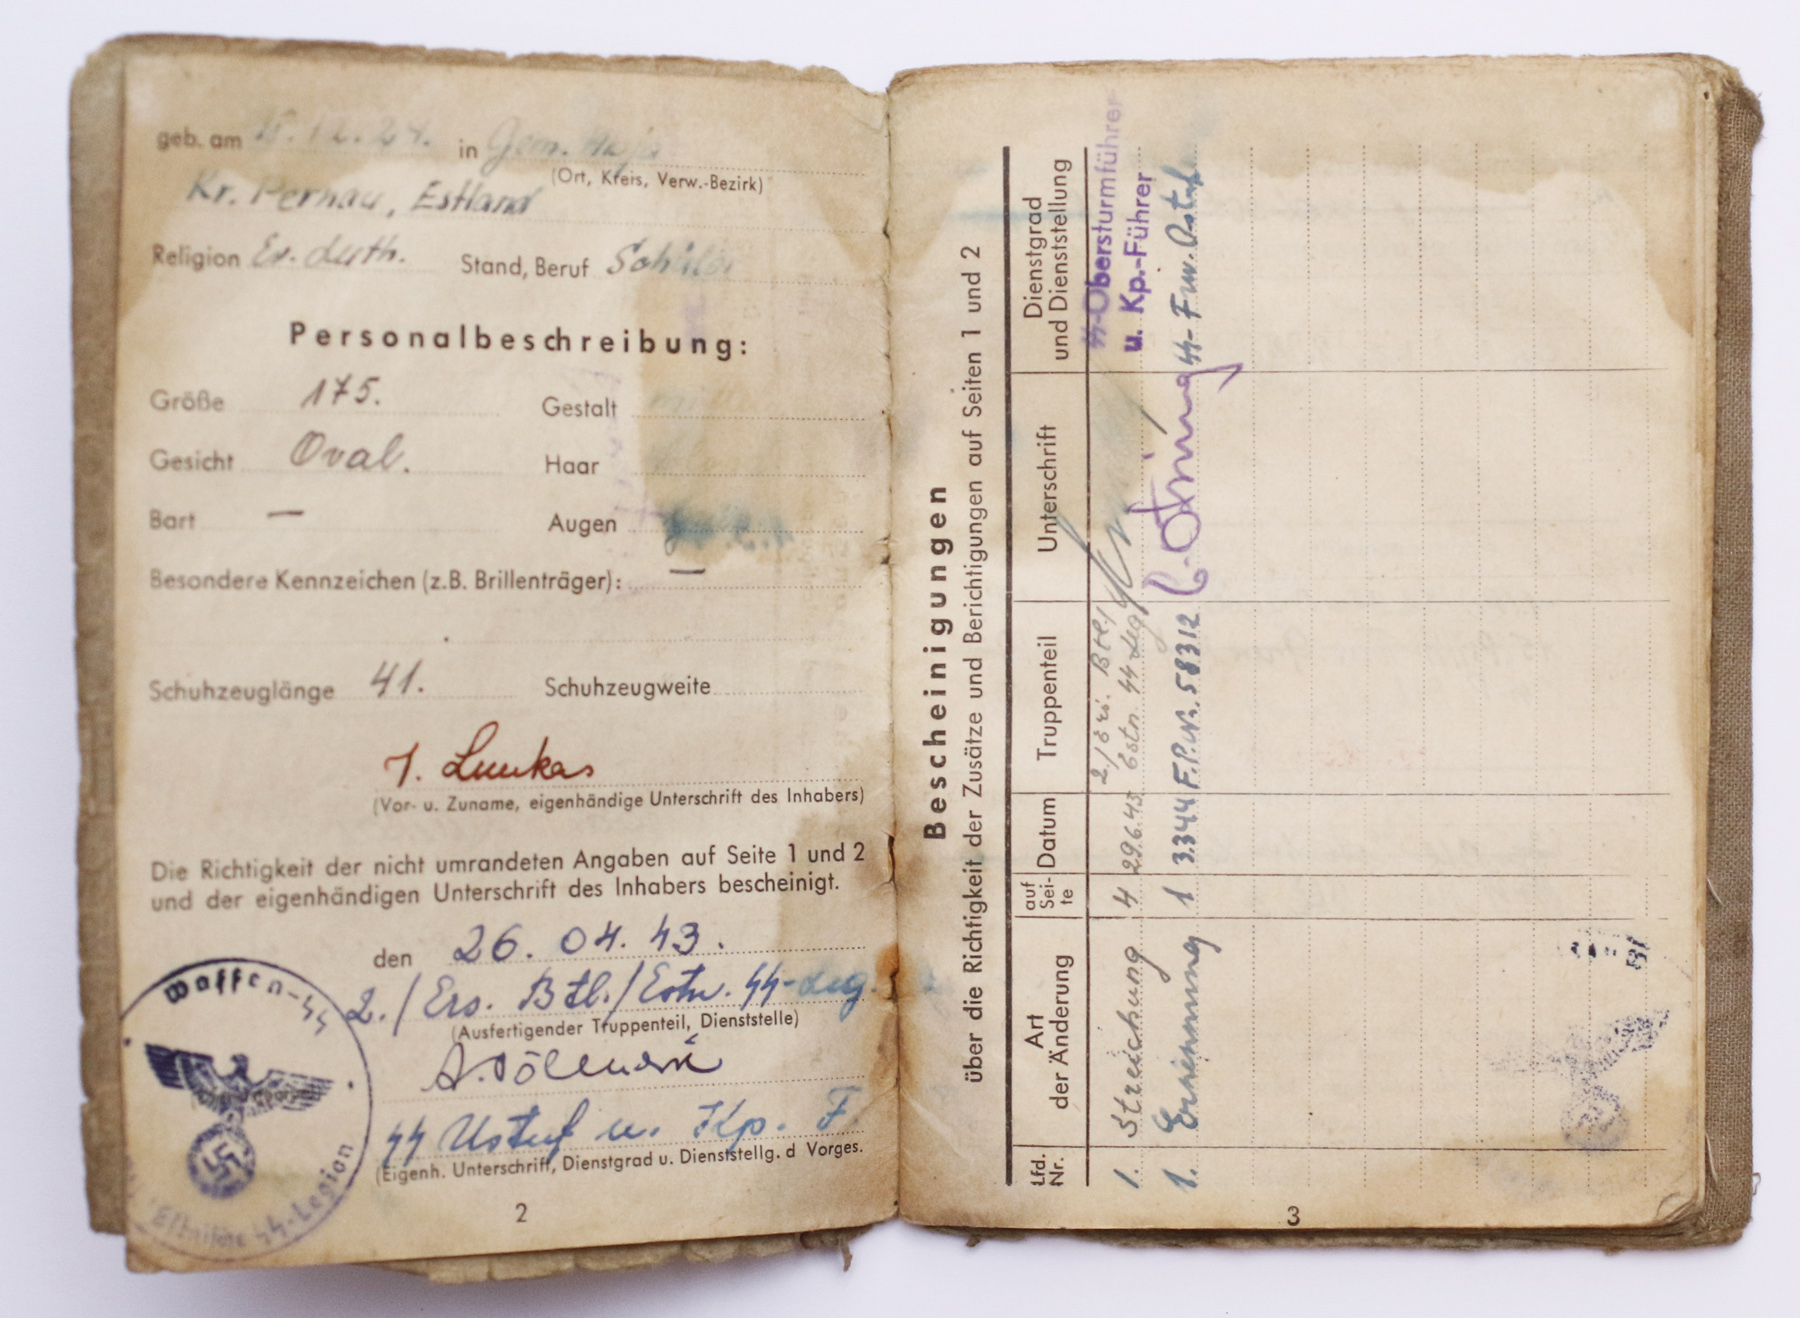 geb. am 15.12.24. in Gem.
(Ort, Kreis, Verw.-Bezirk)
Kr. Pernau, Estland
Religion Ev. Luth. Stand, Beruf Schüler
Personalbeschreibung:
Größe 175. Gestalt
Gesicht Oval. Haar
Bart — Augen
Besondere Kennzeichen (z.B. Brillenträger): —
Schuhzeuglänge 41. Schuhzeugweite
J. Luukas
(Vor- u. Zuname, eigenhändige Unterschrift des Inhabers)
Die Richtigkeit der nicht umrandeten Angaben auf Seite 1 und 2
und der eigenhändigen Unterschrift des Inhabers bescheinigt.
den 26.04.43.
2./Ers. Btl./Estn. SS-Leg.
(Ausfertigender Truppenteil, Dienststelle)
SS Ustuf u. Kp. F.
(Eigenh. Unterschrift, Dienstgrad u. Dienststellg. d Vorges.
Waffen-SS
Estnische SS-Legion
2
Bescheinigungen
über die Richtigkeit der Zusätze und Berichtigungen auf Seiten 1 und 2
Lfd. Nr. Art der Änderung auf Sei-te Datum Truppenteil Unterschrift Dienstgrad und Dienststellung
1. Streichung 4 29.6.43 2./Ers. Btl./ Estn. SS Leg SS-Obersturmführer u. Kp.-Führer
1. Ernennung 1 3.3.44 F.P.Nr. 58312 SS-
3